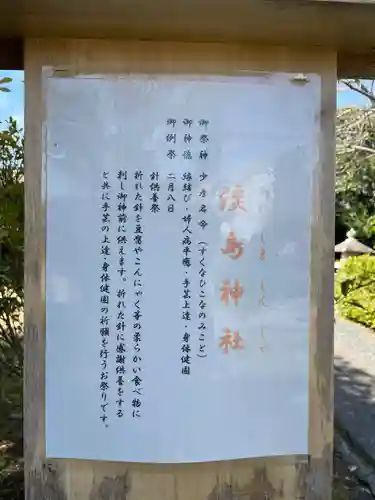 淡島神社
あわしまじんじゃ
御祭神 少彦名命(すくなひこなのみこと)
御神徳 縁結び・婦人病平癒・手芸上達・身体健固
御例祭 二月八日
針供養祭
折れた針を豆腐やこんにゃく等の柔らかい食べ物に
刺し御神前に供えます。折れた針に感謝供養をする
と共に手芸の上達・身体健固の祈願を行うお祭りです。